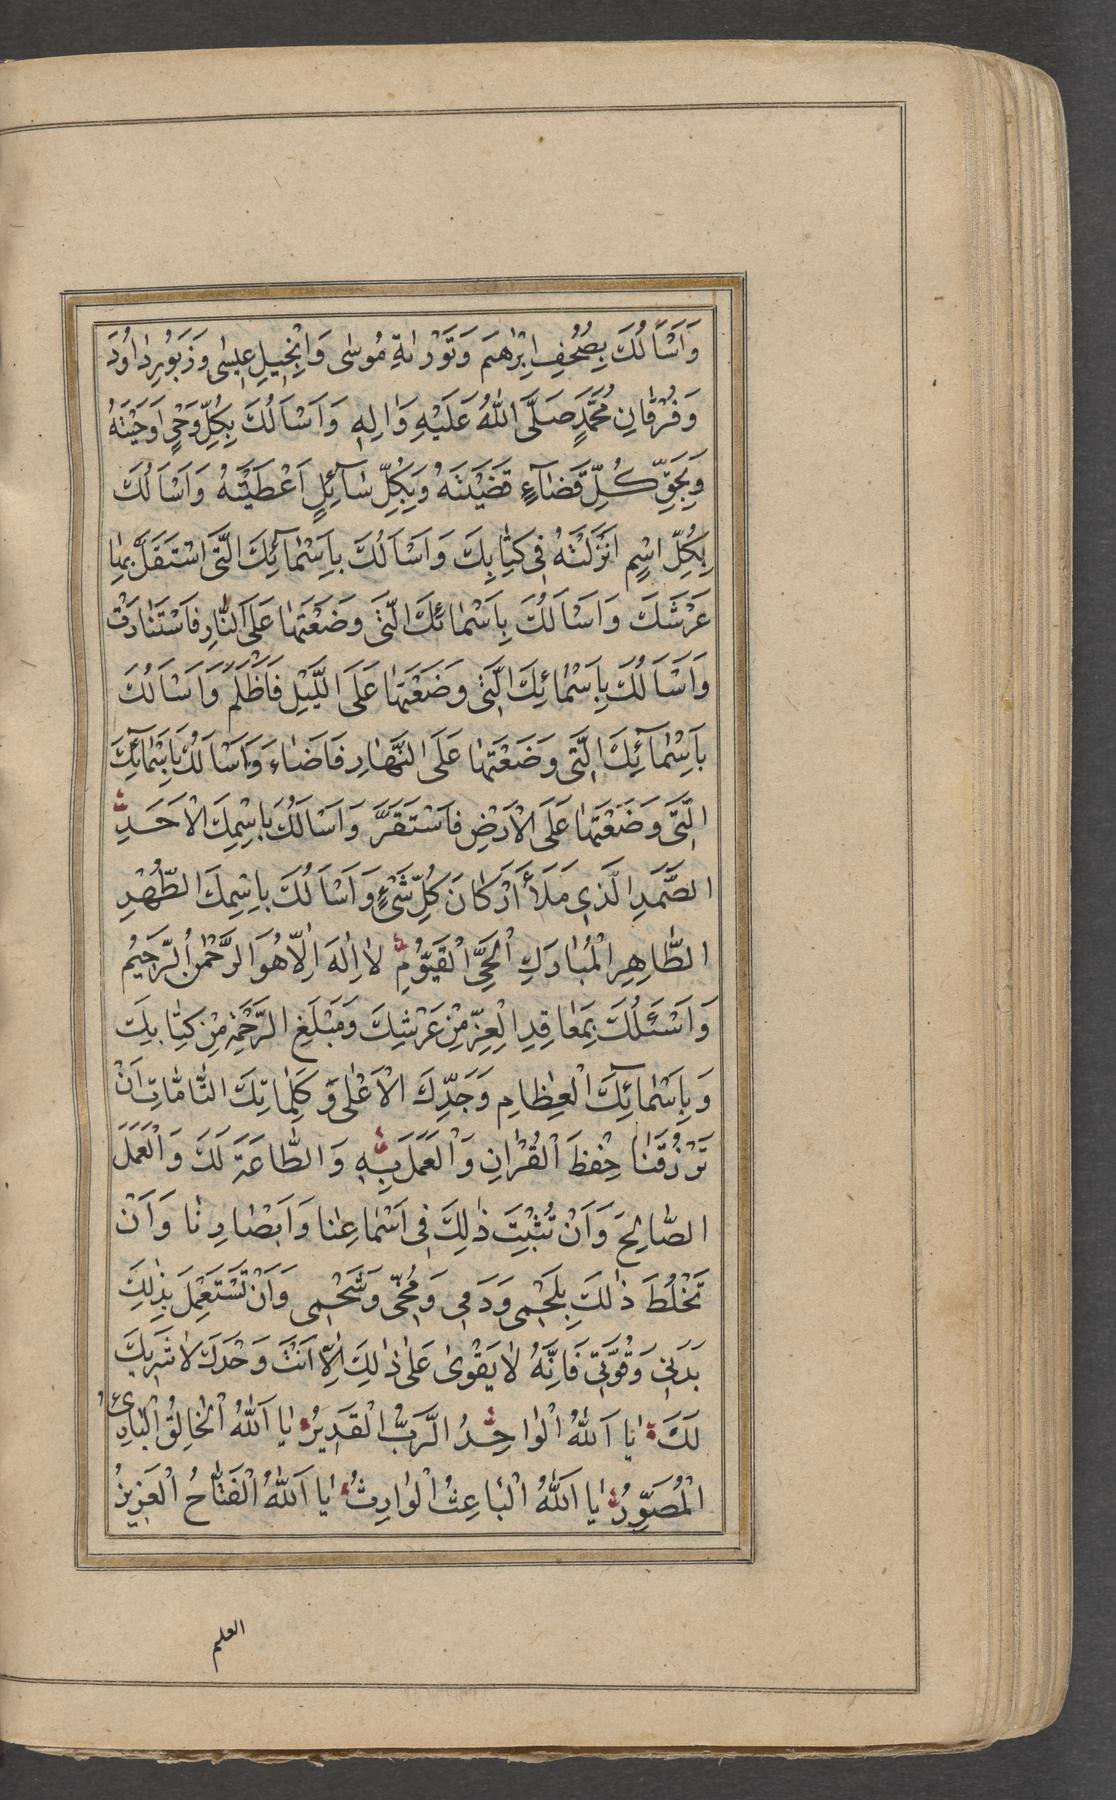 وَاَسْاَلُكَ بِصُحُفِ اِبْرٰهِيمَ وَتَوْرٰيةِ مُوسٰى وَاِنْجٖيلِ عٖيسٰى وَزَبُورِ دٰاوُدَ
وَفُرْقٰانِ مُحَمَّدٍ صَلَّى اللّٰهُ عَلَيْهِ وَاٰلِهٖ وَاَسْاَلُكَ بِكُلِّ وَحْىٍ اَوْحَيْتَهُ
وَبِحَقِّ كُلِّ قَضٰآءٍ قَضَيْتَهُ وَبِكُلِّ سٰآئِلٍ اَعْطَيْتَهُ وَاَسْاَلُكَ
بِكُلِّ اسْمٍ اَنْزَلْتَهُ فٖى كِتٰابِكَ وَاَسْاَلُكَ بِاَسْمٰآئِكَ الَّتٖى اسْتَقَلَّ بِهٰا
عَرْشُكَ وَاَسْاَلُكَ بِاَسْمٰائِكَ الَّتٖى وَضَعْتَهٰا عَلَى النّٰارِ فَاسْتَنٰارَتْ
وَاَسْاَلُكَ بِاَسْمٰائِكَ الَّتٖى وَضَعْتَهٰا عَلَى اللَّيْلِ فَاَظْلَمَ وَاَسْاَلُكَ
بِاَسْمٰآئِكَ الَّتٖى وَضَعْتَهٰا عَلَى النَّهٰارِ فَاَضٰاءَ وَاَسْاَلُكَ بِاَسْمٰآئِكَ
الَّتٖى وَضَعْتَهٰا عَلَى الْاَرْضِ فَاسْتَقَرَّ وَاَسْاَلُكَ بِاسْمِكَ الْاَحَدِ
الصَّمَدِ الَّذٖى مَلَأَ اَرْكٰانَ كُلِّ شَىْءٍ وَاَسْاَلُكَ بِاسْمِكَ الطُّهْرِ
الطّٰاهِرِ الْمُبٰارَكِ الْحَىِّ الْقَيُّومِ لٰا اِلٰهَ اِلّٰا هُوَ الرَّحْمٰنُ الرَّحٖيمُ
وَاَسْئَلُكَ بِمَعٰاقِدِ الْعِزِّ مِنْ عَرْشِكَ وَمَبْلَغِ الرَّحْمَةِ مِنْ كِتٰابِكَ
وَبِاَسْمٰآئِكَ الْعِظٰامِ وَجَدِّكَ الْاَعْلٰى وَكَلِمٰاتِكَ التّٰآمّٰاتِ اَنْ
تَرْزُقَنٰا حِفْظَ الْقُرْاٰنِ وَالْعَمَلَ بِهٖ وَالطّٰاعَةَ لَكَ وَالْعَمَلَ
الصّٰالِحَ وَاَنْ تُثْبِتَ ذٰلِكَ فٖى اَسْمٰاعِنٰا وَاَبْصٰارِنٰا وَاَنْ
تَخْلُطَ ذٰلِكَ بِلَحْمٖى وَدَمٖى وَمُخّٖى وَشَحْمٖى وَاَنْ تَسْتَعْمِلَ بِذٰلِكَ
بَدَنٖى وَقُوَّتٖى فَاِنَّهُ لٰا يَقْوٰى عَلٰى ذٰلِكَ اِلّٰا اَنْتَ وَحْدَكَ لٰا شَرٖيكَ
لَكَ يٰا اَللّٰهُ الْوٰاحِدُ الرَّبُّ الْقَدٖيرُ يٰا اَللّٰهُ الْخٰالِقُ الْبٰارِئُ
الْمُصَوِّرُ يٰا اَللّٰهُ الْبٰاعِثُ الْوٰارِثُ يٰا اَللّٰهُ الْفَتّٰاحُ الْعَزٖيزُ
العلم